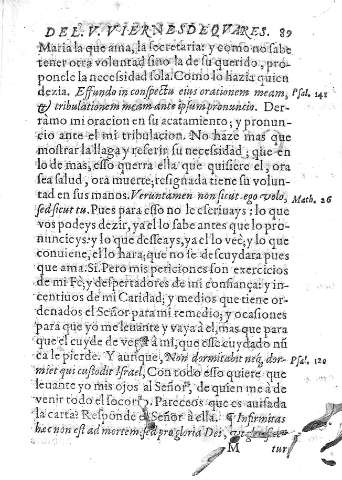 DEL. V. VIERNES DE QVARES. 89
Maria la que ama, la secretaria: y como no sabe
tener otra voluntad sino la de su querido, pro
ponele la necessidad sola. Como lo hazia quien
dezia. Effundo in conspectu eius orationem meam, Psal. 141
& tribulationem meam ante ipsum pronuncio. Der-
ràmo mi oracion en su acatamiento; y pronun-
cio ante el mi tribulacion. No haze mas que
mostrar la llaga y referir su necessidad; que en
lo de mas, esso querra ella que quisiere el, ora
sea salud, ora muerte; resignada tiene su volun-
tad en sus manos. Veruntamen non sicut ego volo, Math. 26
sed sicut tu. Pues para esso no le escriuays: lo que
vos podeys dezir, ya el lo sabe antes que lo pro-
nuncieys: y lo que desseays, ya el lo veè; y lo que
conuiene, el lo hara; que no se descuydara pues
que ama. Si. Pero mis peticiones son exercicios
de mi Fè; y despertadores de mi confiança: y in-
centiuos de mi Caridad; y medios que tiene or-
denados el Señor para mi remedio; y ocasiones
para que yo me leuante y vaya à el, mas que para
que el cuyde de verme à mi, que esse cuydado nũ
ca le pierde. Y aunque, Non dormitabit neq; dor- Psal. 120
miet qui custodit Israel, Con todo esso quiere que
leuante yo mis ojos al Señor, de quien me à de
venir todo el socorro. Pareceos que es auisada
la carta? Responde el Señor à ella. ¶ Infirmitas
hæc non est ad mortem, sed pro gloria Dei,
M tur